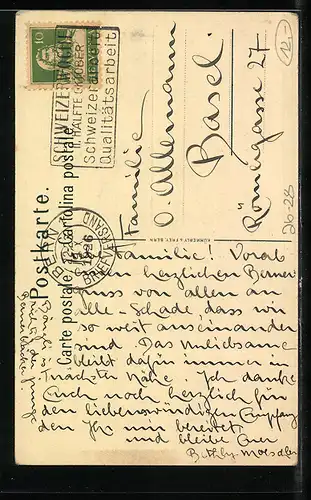 10
SCHWEIZERWOCHE
II. HÄLFTE OKTOBER
Schweizerarbeit
Qualitätsarbeit
Postkarte.
Carte postale. Cartolina postale
BERN
1926
BRIEFVERSAND
KÜMMERLY & FREY, BERN
Familie
O. Allemann
Basel.
Römergasse 27
12.-
26-28
Familie! Vorab
herzlichen Berner
gruss von allen an
alle. Schade, dass wir
so weit auseinander
sind. Das
bleibt dafür immer in
nächster Nähe. Ich danke
Euch noch herzlich für
den liebenswürdigen Empfang
den Ihr mir bereitet
und bleibe Euer